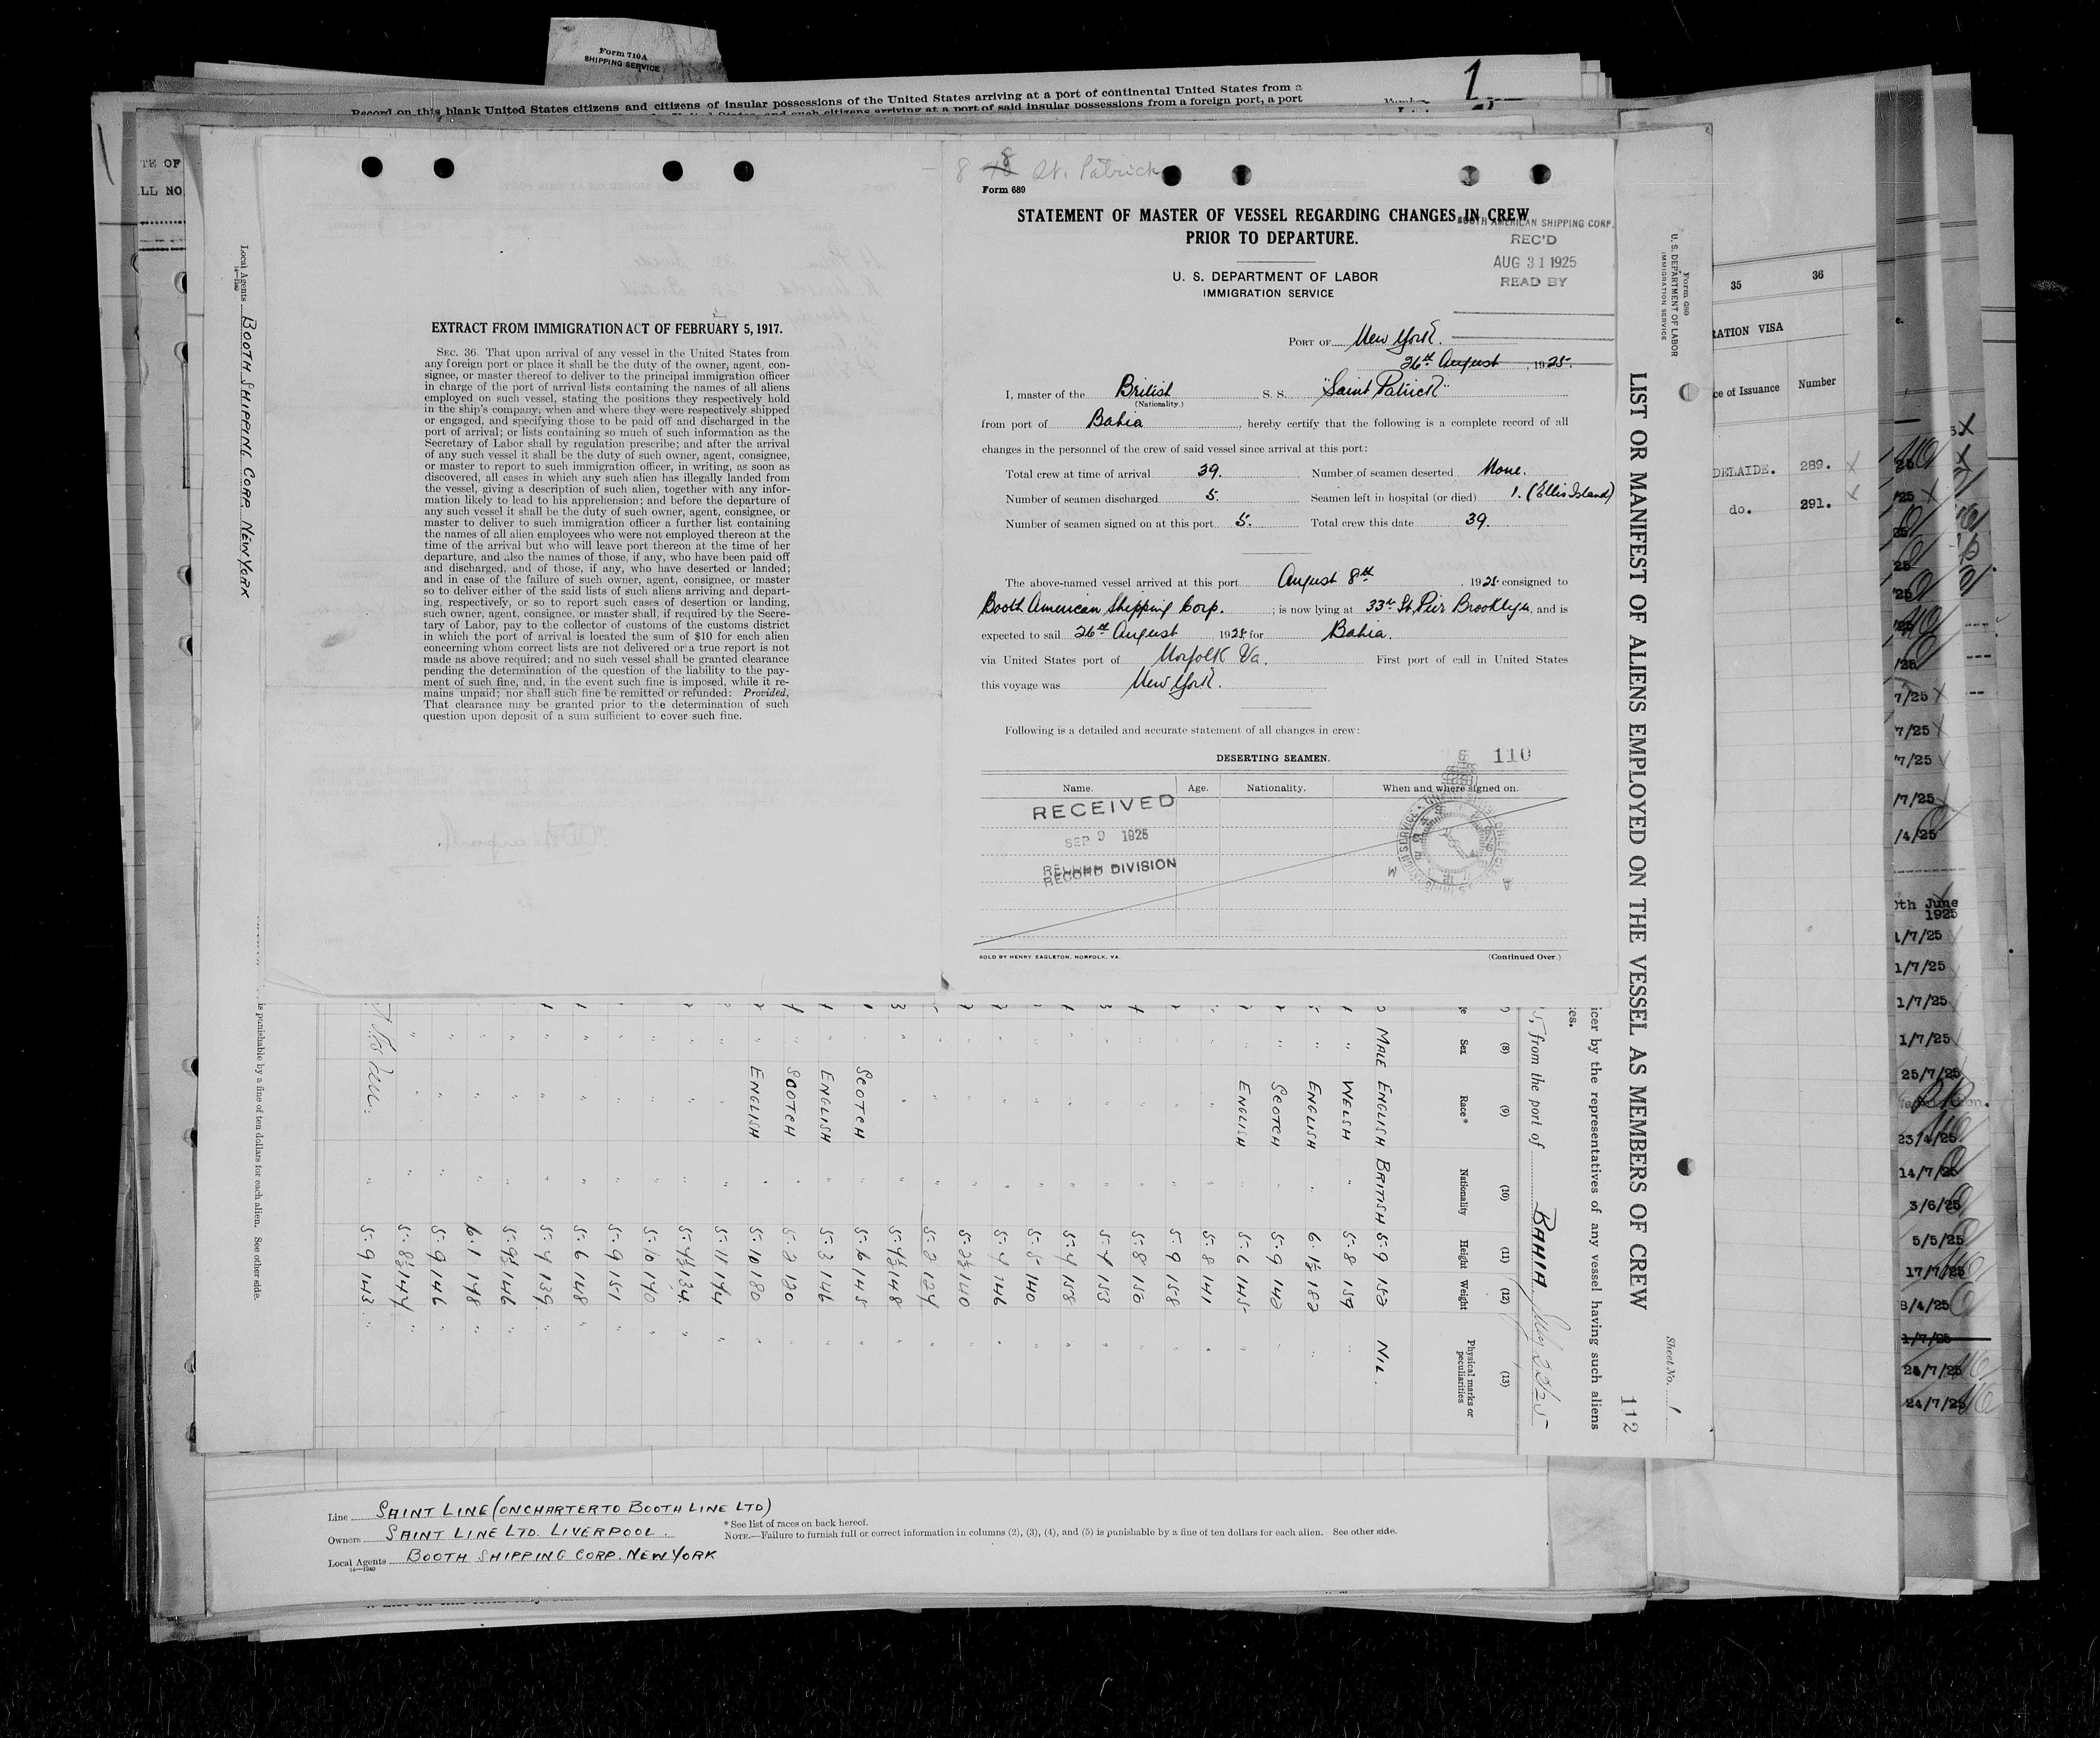 Form 710A
SHIPPING SERVICE
1
Record on this blank United States citizens and citizens of insular possessions of the United States arriving at a port of continental United States from a
TE OF
LL NO
Local Agents BOOTH SHIPPING CORP. NEW YORK
14—1240
EXTRACT FROM IMMIGRATION ACT OF FEBRUARY 5, 1917.
SEC. 36. That upon arrival of any vessel in the United States from
any foreign port or place it shall be the duty of the owner, agent, con-
signee, or master thereof to deliver to the principal immigration officer
in charge of the port of arrival lists containing the names of all aliens
employed on such vessel, stating the positions they respectively hold
in the ship's company, when and where they were respectively shipped
or engaged, and specifying those to be paid off and discharged in the
port of arrival; or lists containing so much of such information as the
Secretary of Labor shall by regulation prescribe; and after the arrival
of any such vessel it shall be the duty of such owner, agent, consignee,
or master to report to such immigration officer, in writing, as soon as
discovered, all cases in which any such alien has illegally landed from
the vessel, giving a description of such alien, together with any infor-
mation likely to lead to his apprehension; and before the departure of
any such vessel it shall be the duty of such owner, agent, consignee, or
master to deliver to such immigration officer a further list containing
the names of all alien employees who were not employed thereon at the
time of the arrival but who will leave port thereon at the time of her
departure, and also the names of those, if any, who have been paid off
and discharged, and of those, if any, who have deserted or landed;
and in case of the failure of such owner, agent, consignee, or master
so to deliver either of the said lists of such aliens arriving and depart-
ing, respectively, or so to report such cases of desertion or landing,
such owner, agent, consignee, or master shall, if required by the Secre-
tary of Labor, pay to the collector of customs of the customs district
in which the port of arrival is located the sum of $10 for each alien
concerning whom correct lists are not delivered or a true report is not
made as above required; and no such vessel shall be granted clearance
pending the determination of the question of the liability to the pay-
ment of such fine, and, in the event such fine is imposed, while it re-
mains unpaid; nor shall such fine be remitted or refunded: Provided,
That clearance may be granted prior to the determination of such
question upon deposit of a sum sufficient to cover such fine.
8 St. Patrick
Form 689
STATEMENT OF MASTER OF VESSEL REGARDING CHANGES IN CREW
PRIOR TO DEPARTURE.
BOOTH AMERICAN SHIPPING CORP.
REC'D
AUG 31 1925
READ BY
U. S. DEPARTMENT OF LABOR
IMMIGRATION SERVICE
PORT OF New York.
26th August, 1925.
I, master of the British S. S. "Saint Patrick"
(Nationality.)
from port of Bahia, hereby certify that the following is a complete record of all
changes in the personnel of the crew of said vessel since arrival at this port:
Total crew at time of arrival 39. Number of seamen deserted None.
Number of seamen discharged 5. Seamen left in hospital (or died) 1. (Ellis Island)
Number of seamen signed on at this port 5. Total crew this date 39.
The above-named vessel arrived at this port August 8th, 1925 consigned to
Booth American Shipping Corp.; is now lying at 33rd St. Pier Brooklyn, and is
expected to sail 26th August, 1925 for Bahia.
via United States port of Norfolk Va. First port of call in United States
this voyage was New York.
Following is a detailed and accurate statement of all changes in crew:
DESERTING SEAMEN.
110
Name. Age. Nationality. When and where signed on.
RECEIVED
SEP 9 1925
RECORD DIVISION
SOLD BY HENRY EAGLETON, NORFOLK, VA.
(Continued Over.)
Form 680
U. S. DEPARTMENT OF LABOR
IMMIGRATION SERVICE
LIST OR MANIFEST OF ALIENS EMPLOYED ON THE VESSEL AS MEMBERS OF CREW
Sheet No. 1
112
icer by the representatives of any vessel having such aliens
from the port of BAHIA
(8) (9) (10) (11) (12) (13)
Sex Race* Nationality Height Weight Physical marks or peculiarities
MALE ENGLISH BRITISH 5-9 152 NIL.
" WELSH " 5-8 159 "
" ENGLISH " 6-1½ 182 "
" SCOTCH " 5-9 142 "
" ENGLISH " 5-6 145 "
5-8 141
5-9 158
5-8 150
5-4 153
5-4 158
5-5 140
5-4 146
5-2½ 140
5-2 124
5-4½ 148
SCOTCH 5-6 145
ENGLISH 5-3 146
SCOTCH 5-2 120
ENGLISH 5-10 180
5-11 174
5-4½ 134
5-10 170
5-9 151
5-6 148
5-4 139
5-9½ 146
6-1 178
5-9 146
5-8½ 144
5-9 143
is punishable by a fine of ten dollars for each alien. See other side.
Line SAINT LINE (ON CHARTER TO BOOTH LINE LTD)
Owners SAINT LINE LTD. LIVERPOOL.
Local Agents BOOTH SHIPPING CORP. NEW YORK
14—1240
* See list of races on back hereof.
NOTE.—Failure to furnish full or correct information in columns (2), (3), (4), and (5) is punishable by a fine of ten dollars for each alien. See other side.
35 36
RATION VISA
ce of Issuance Number
DELAIDE. 289.
do. 291.
7/25
7/25
7/25
/7/25
/4/25
th June
1925
1/7/25
1/7/25
1/7/25
1/7/25
25/7/25
23/4/25
14/7/25
3/6/25
5/5/25
17/7/25
8/4/25
1/7/25
24/7/25